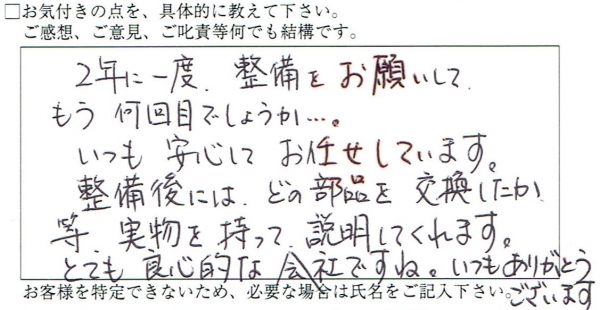 □お気付きの点を、具体的に教えて下さい。
ご感想、ご意見、ご叱責等何でも結構です。
2年に一度、整備をお願いして、
もう何回目でしょうか…。
いつも安心してお任せしています。
整備後には、どの部品を交換したか
等、実物を持って、説明してくれます。
とても良心的な会社ですね。いつもありがとう
ございます
お客様を特定できないため、必要な場合は氏名をご記入下さい。